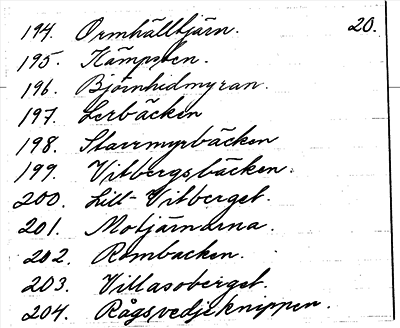 20.
194. Ormhålltjärn.
195. Kämpsten.
196. Björnhidmyran.
197. Lerbäcken
198. Starrmyrbäcken
199. Vitbergsbäcken.
200. Lill-Vitberget.
201. Motjärnarna.
202. Rombacken.
203. Villasoberget.
204. Rågsvedjeknippen.